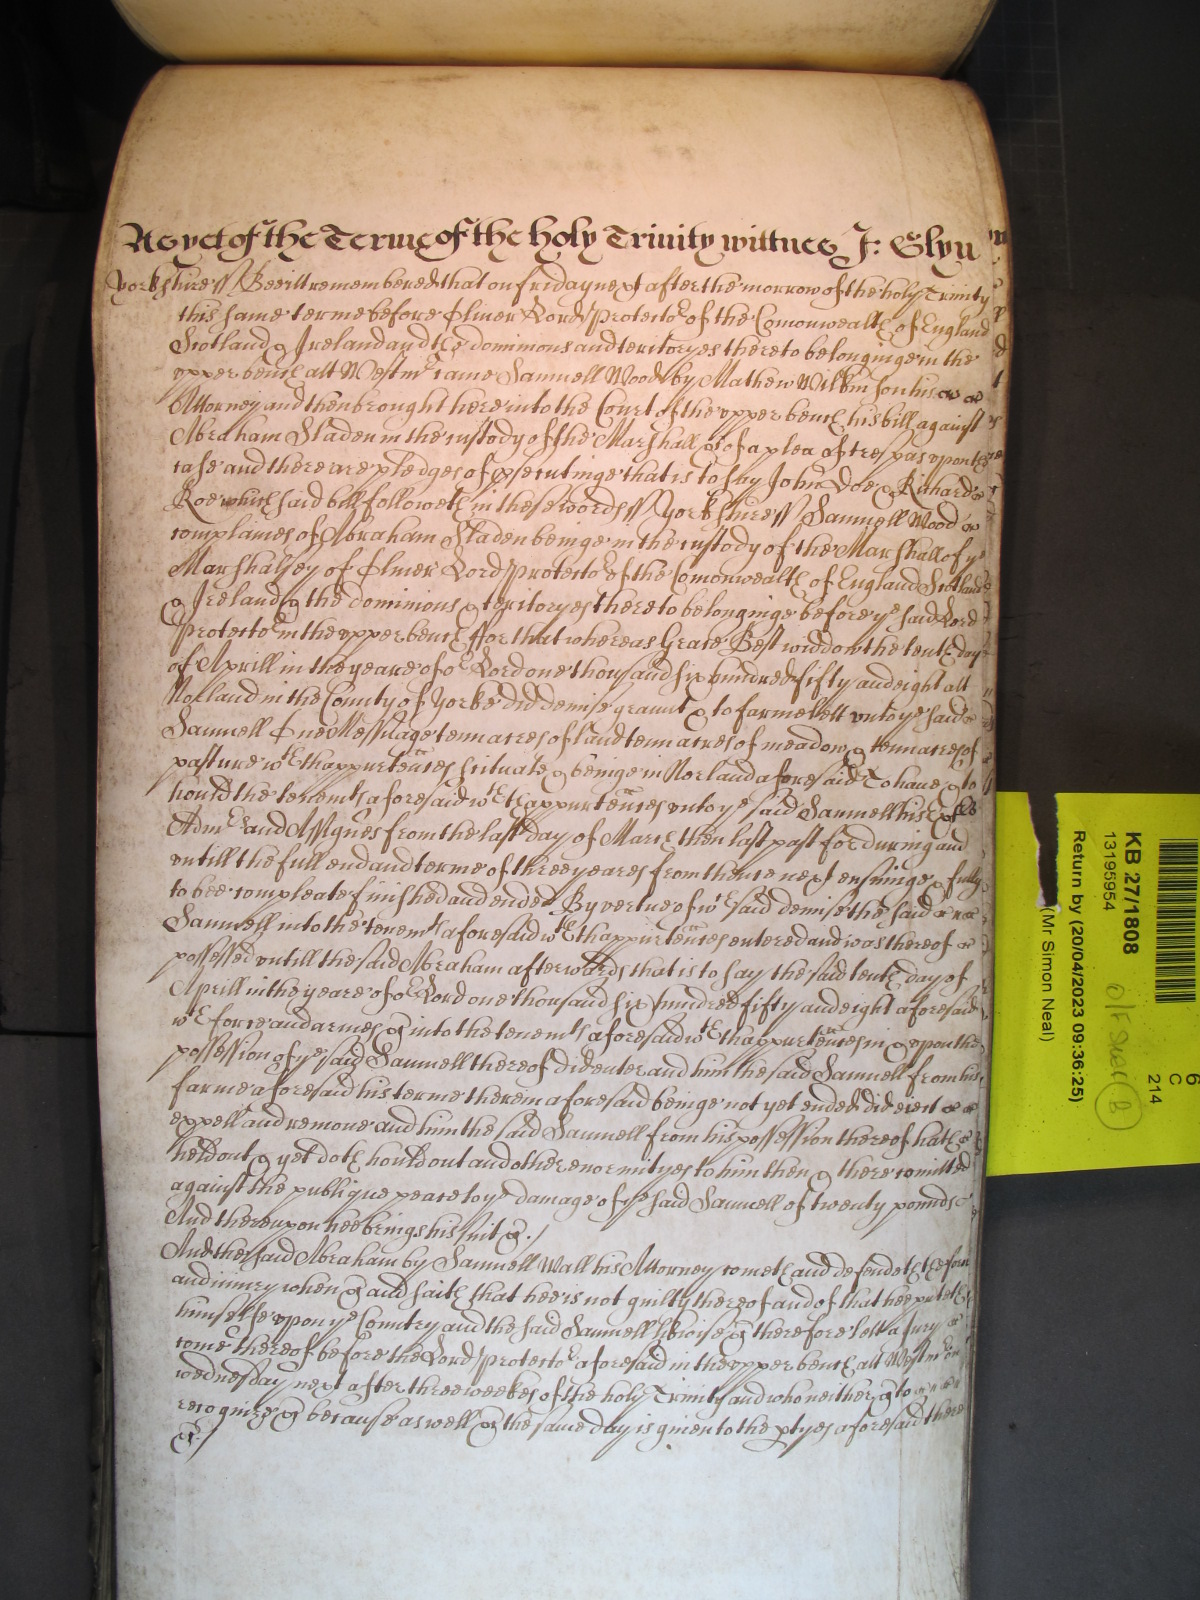 As yet of the Terme of the holy Trinity wittnes J: Glyn
Yorkshire ss Bee itt remembered that on friday next after the morrow of the holy Trinity
this same terme before Oliver Lord Protector of the Comonwealth of England
Scotland & Ireland and the dominions and territoryes thereto belonginge in the
upper bench att Westmr came Samuell Wood by Mathew Wilkinson his
Attorney and then brought here into the Court of the upper bench his bill against
Abraham Sladen in the custody of the Marshall &c of a plea of trespas upon the
case and there are pledges of prsecutinge that is to say John Doe & Richard
Roe which said bill followeth in these words ss Yorkshire ss Samuell Wood
complaines of Abraham Sladen beinge in the custody of the Marshall of ye
Marshalsey of Oliver Lord Protector of the Comonwealth of England Scotland
& Ireland & the dominions & territoryes thereto belonginge before ye said Lord
Protector in the upper bench ffor that whereas Grace Best widdow the tenth day
of Aprill in the yeare of or Lord one thousand six hundred fifty and eight att
Norland in the County of Yorke did demise graunt & to farme lett unto ye said
Samuell One Messuage tenn acres of land tenn acres of meadow & tenn acres of
pasture wth thappurtenn'ces scituate & beinge in Norland aforesaid To have & to
hould the tenemts aforesaid wth thappurtenn'ces unto ye said Samuell his Exrs
Admrs and Assignes from the last day of March then last past for during and
untill the full end and terme of three yeares from thence next ensuinge & fully
to bee compleate finished and ended By vertue of wch said demise the said
Samuell into the tenemts aforesaid wth thappurtenn'ces entered and was thereof
possessed untill the said Abraham afterwards that is to say the said tenth day of
Aprill in the yeare of or Lord one thousand six hundred fifty and eight aforesaid
wth force and armes &c into the tenemts aforesaid wth thappurtenn'ces in & upon the
possession of ye said Samuell thereof did enter and him the said Samuell from his
farme aforesaid his terme therein aforesaid beinge not yet ended did eject
expell and remove and him the said Samuell from his possession thereof hath
held out & yet doth hould out and other enormityes to him then & there comitted
against the publique peace to ye damage of ye said Samuell of twenty pounds
And thereupon hee brings his suit &c./
And the said Abraham by Samuell Wall his Attorney cometh and defendeth the force
and iniury when &c and saith that hee is not guilty thereof and of that hee putteth
himselfe upon ye Country and the said Samuell likewise &c therefore lett a Jury
come thereof before the Lord Protector aforesaid in the upper bench att Westmr on
wednesday next after three weekes of the holy Trinity and who neither &c to
recognize &c because aswell &c the same day is given to the ptyes aforesaid there
&c./
KB 27/1808
13195954
Return by (20/04/2023 09:36:25)
(Mr Simon Neal)
6
C
214
B